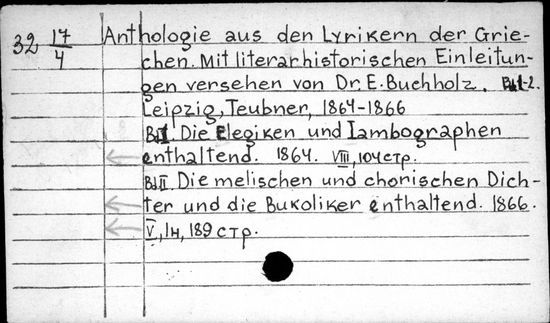 32 17/4 Anthologie aus den Lyrikern der Grie-
chen. Mit literarhistorischen Einleitun-
gen versehen von Dr. E. Buchholz. Bd 1-2.
Leipzig, Teubner, 1864-1866
Bd I. Die Elegiken und Iambographen
enthaltend. 1864. VIII, 104 стр.
Bd II. Die melischen und chorischen Dich-
ter und die Bukoliker enthaltend. 1866.
V, 1н, 189 стр.